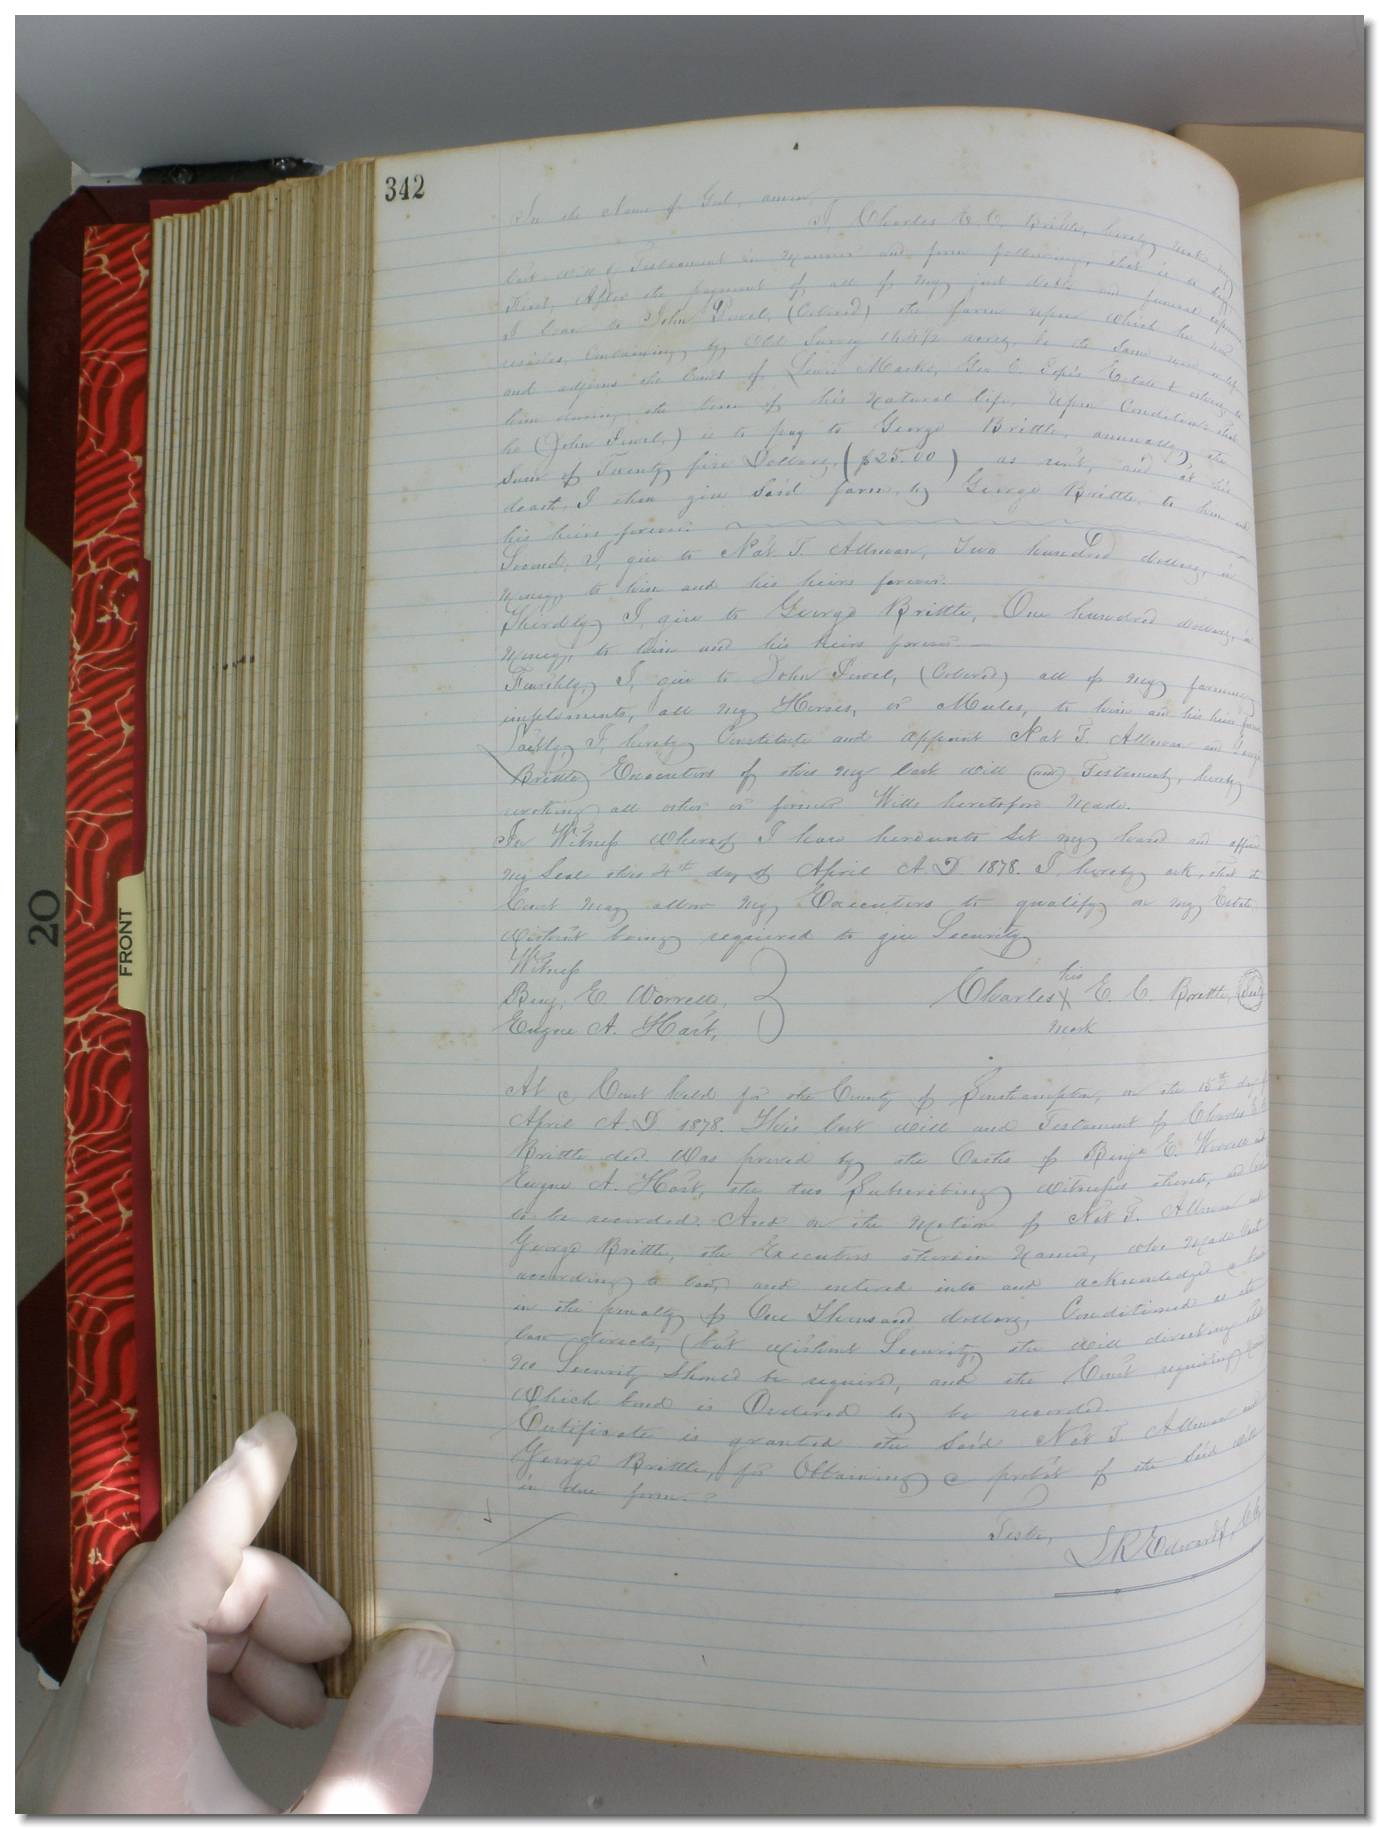 342
In the Name of God, amen,
I, Charles E. C. Brittle, hereby make my
last will & Testament in manner and form following, that is to say
First, After the payment of all of my just debts and funeral expenses
I loan to John (Colored) the farm upon which he now
resides, containing by Old Survey 144 1/2 acres, be the same more or less
and adjoins the lands of Lewis Marks, Geo. C. Estate & others, to
him during the term of his natural life, Upon Condition that
he (John) is to pay to George Brittle, annually, the
Sum of Twenty five Dollars, ($25.00) as rent, and at his
death, I then give said farm, to George Brittle, to him and
his heirs forever.
Second, I, give to Nat T. Allman, Two hundred dollars, in
money, to him and his heirs forever.
Thirdly, I, give to George Brittle, One hundred dollars, in
money, to him and his heirs forever.
Fourthly, I, give to John (Colored) all of my farming
implements, all my Horses, or Mules, to him and his heirs forever
Lastly, I, hereby Constitute and appoint Nat T. Allman and George
Brittle, Executors of this my last will and Testament, hereby
revoking all other or former Wills heretofore made.
In Witness whereof I have hereunto Set my hand and affixed
my Seal this 4th day of April A. D 1878. I, hereby ask, that the
Court may allow my Executors to qualify on my Estate
without being required to give Security
Witness
Benj. E. Worrell,
his
Charles X E. C. Brittle, (Seal)
Eugene A. Hart,
mark
At a Court held for the County of Southampton, on the 15th day of
April A. D. 1878. This last will and Testament of Charles E. C.
Brittle decd. Was proved by the Oaths of Benj. E. Worrell and
Eugene A. Hart, the two Subscribing witnesses thereto, and Ordered
to be recorded. And on the Motion of Nat T. Allman and
George Brittle, the Executors therein Named, who made Oath
according to law, and entered into and acknowledged a bond
in the penalty of One Thousand dollars, Conditioned as the
law directs, (but without Security, the will directing that
no Security should be required, and the Court requiring none)
Which bond is Ordered to be recorded.
Certificate is granted the Said Nat T. Allman and
George Brittle, for Obtaining a probat of the Said Will
in due form.
Teste,
L R Edwards,
FRONT
20